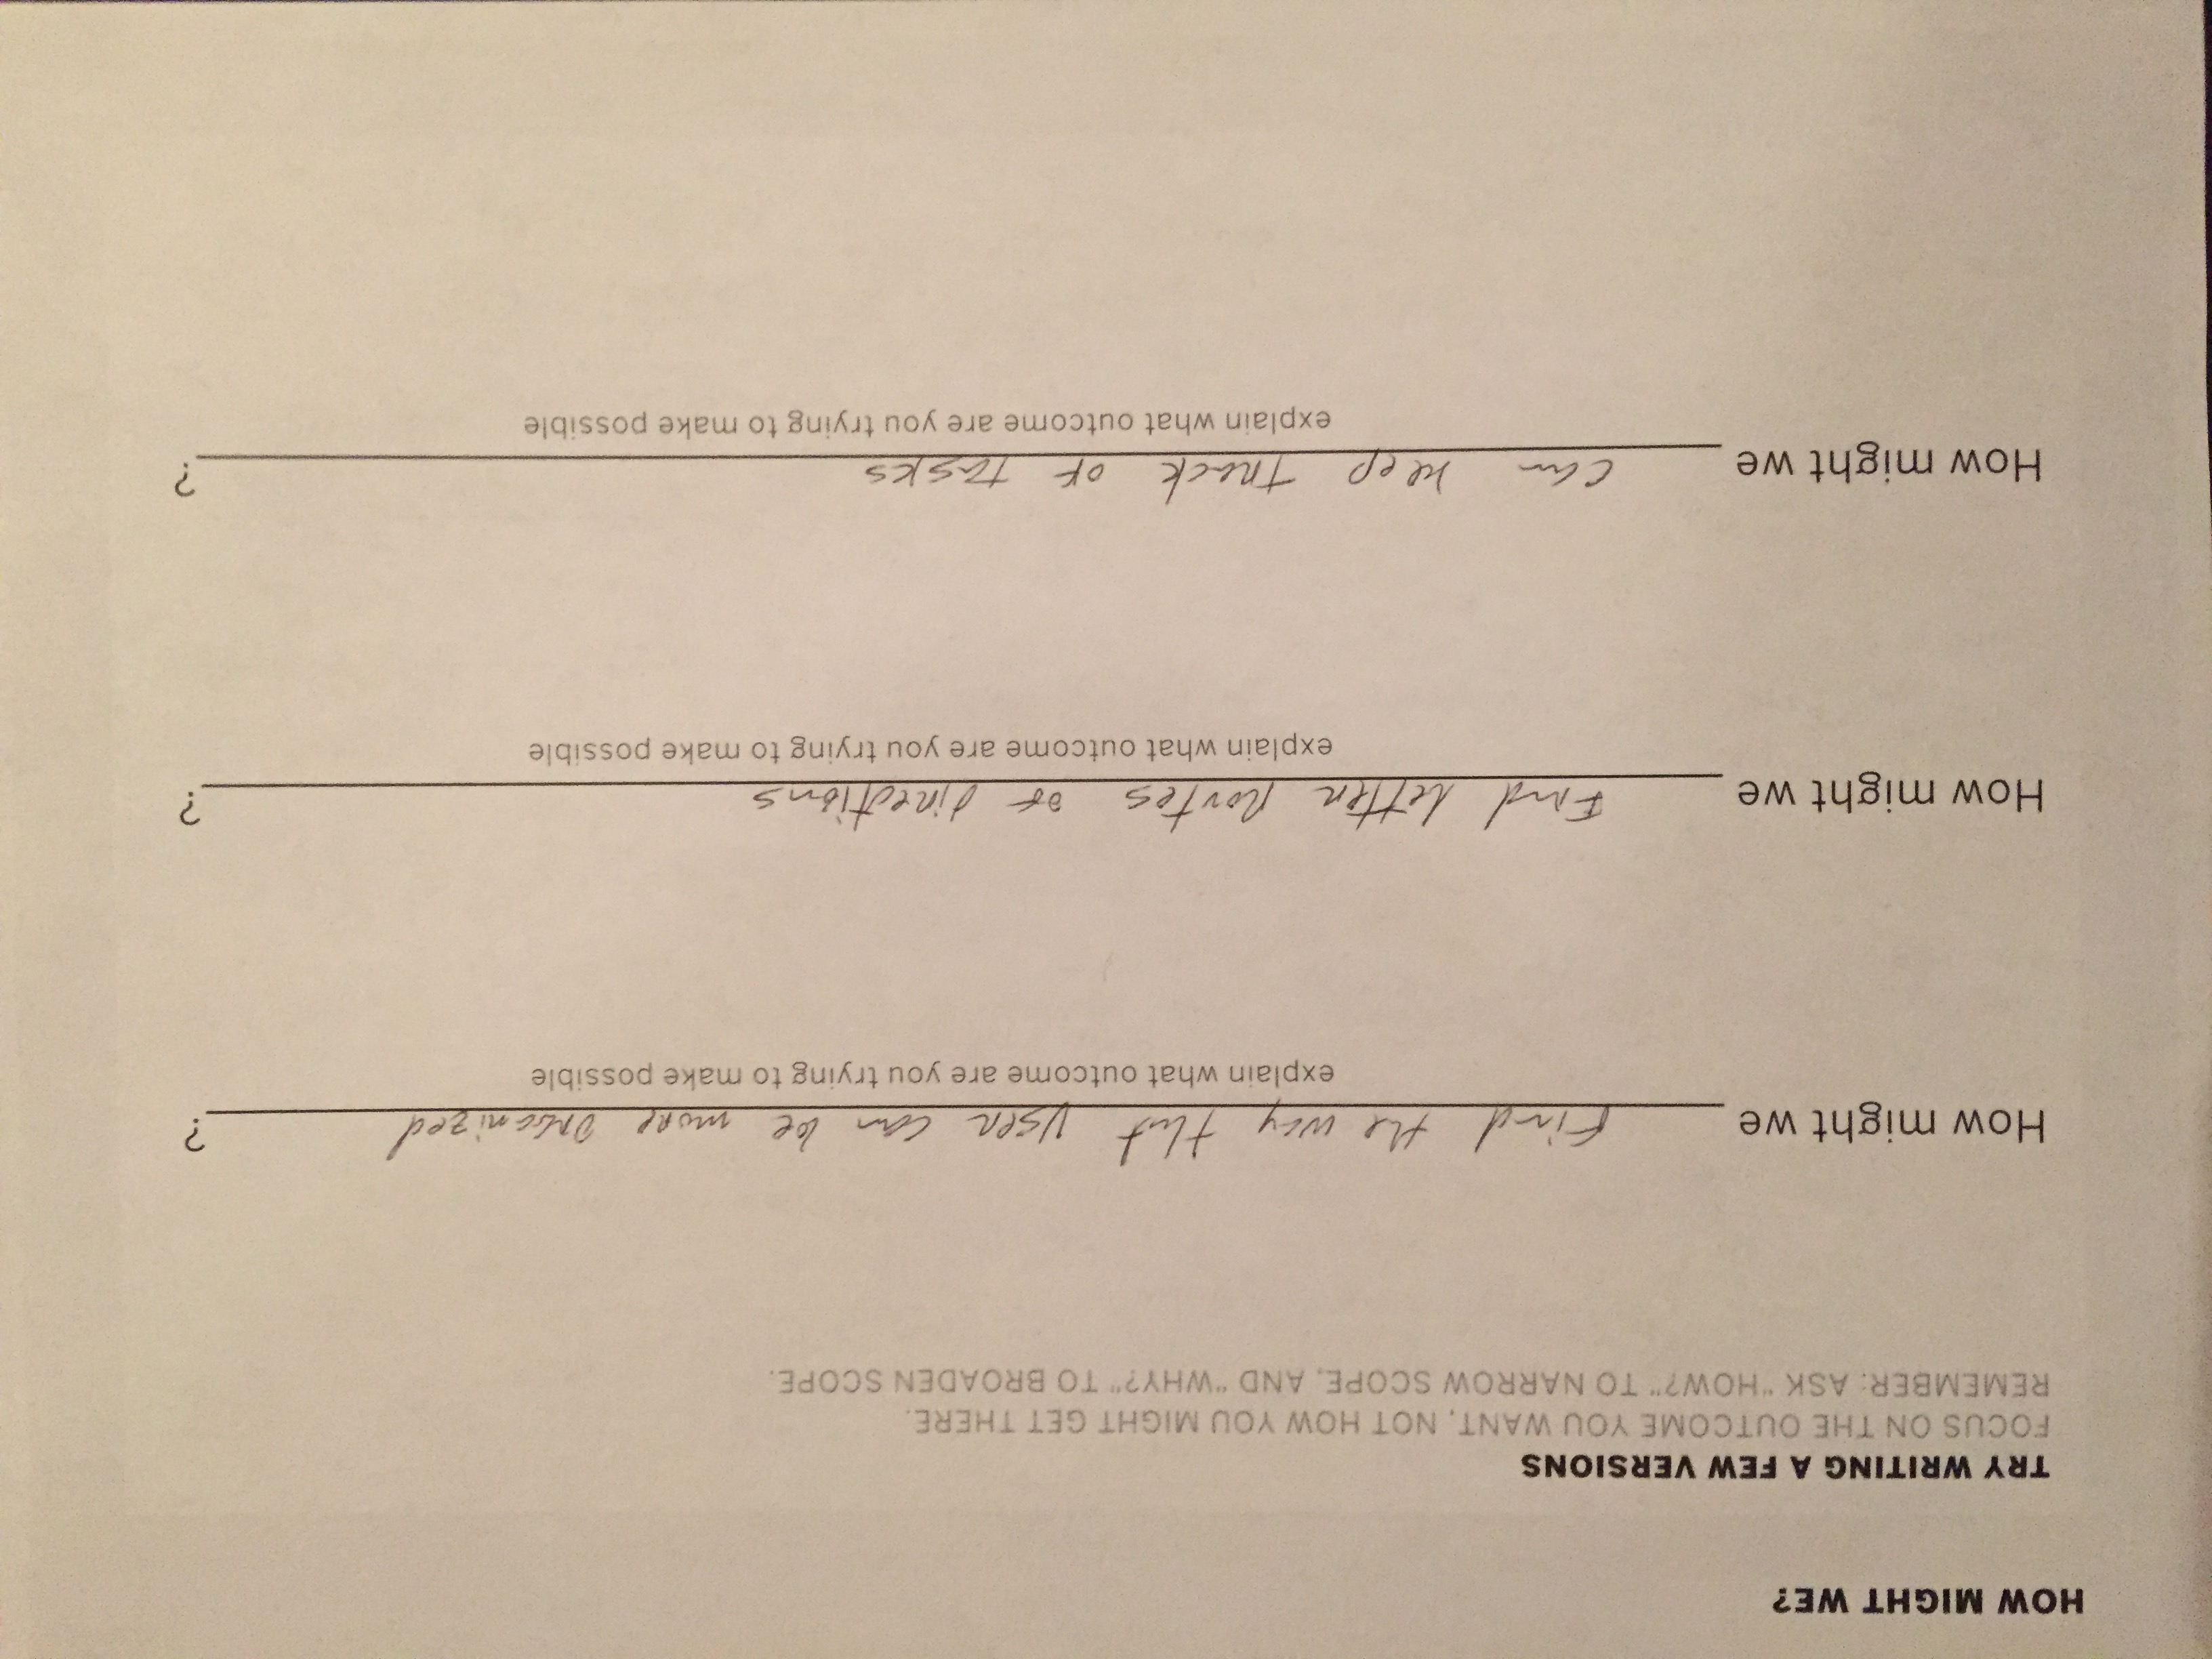 HOW MIGHT WE?
TRY WRITING A FEW VERSIONS
FOCUS ON THE OUTCOME YOU WANT, NOT HOW YOU MIGHT GET THERE.
REMEMBER: ASK "HOW?" TO NARROW SCOPE, AND "WHY?" TO BROADEN SCOPE.
How might we Find the way that User can be more organized ?
explain what outcome are you trying to make possible
How might we Find better Routes of directions ?
explain what outcome are you trying to make possible
How might we can keep track of tasks ?
explain what outcome are you trying to make possible